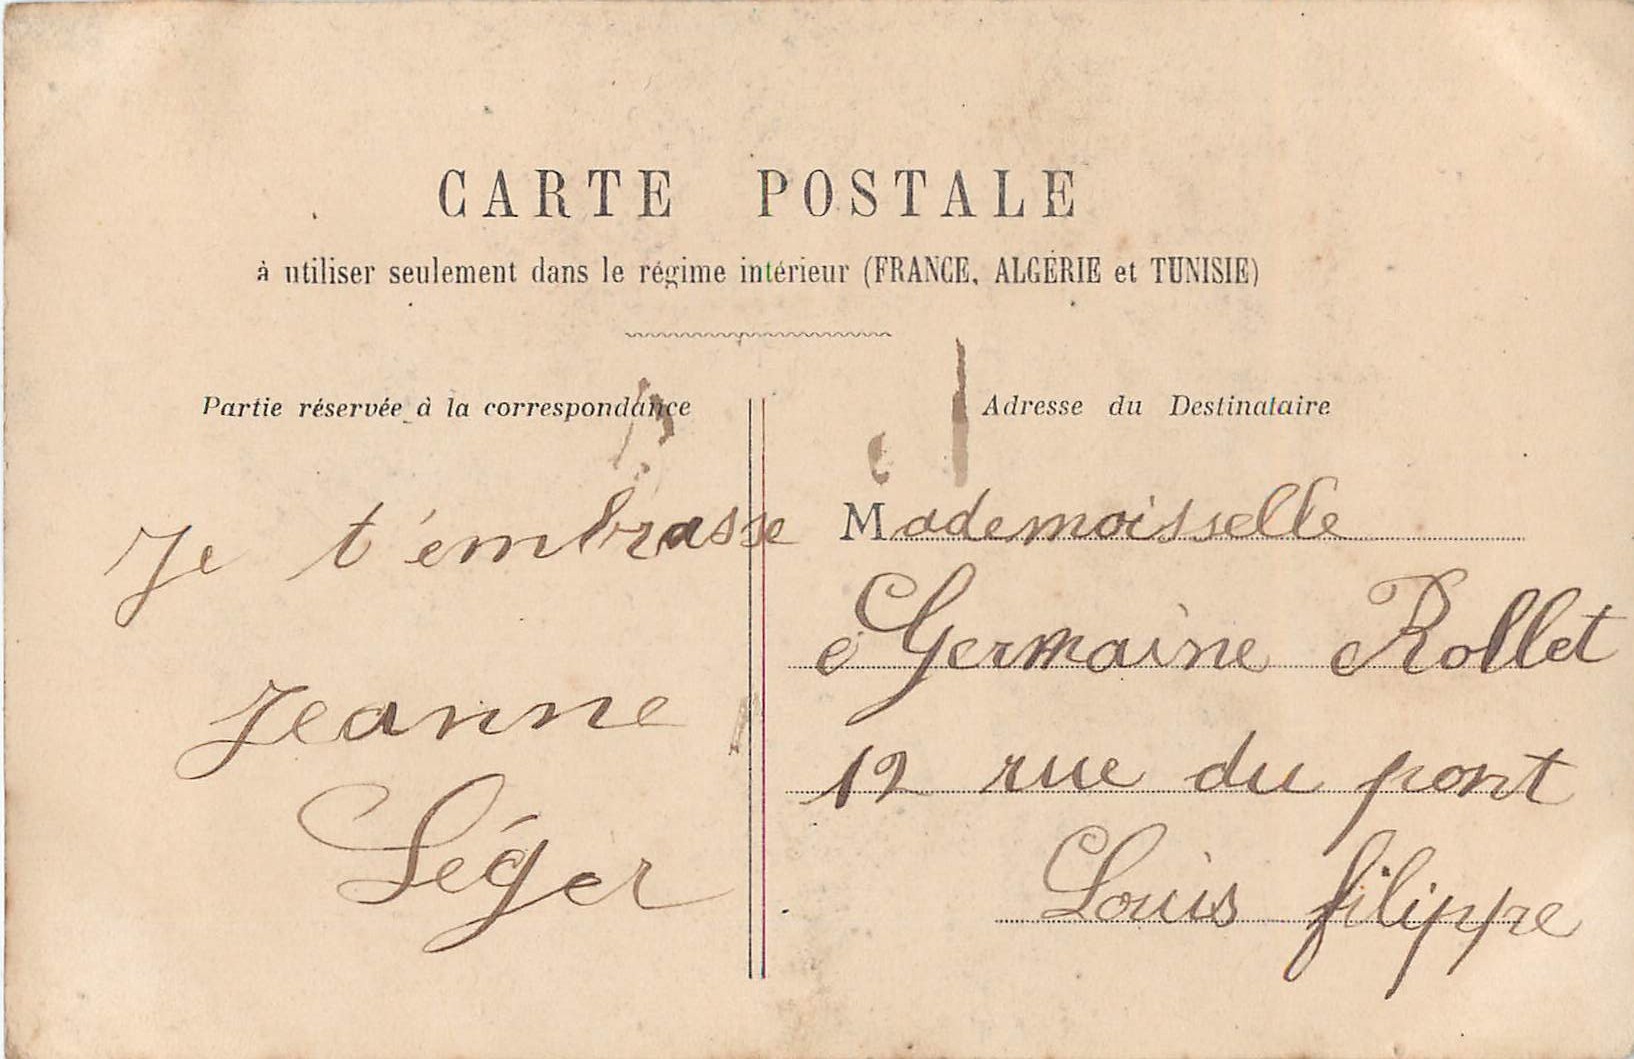 CARTE POSTALE
à utiliser seulement dans le régime intérieur (FRANCE, ALGÉRIE et TUNISIE)
Partie réservée à la correspondance
Je t'émbrasse
Jeanne
Léger
Adresse du Destinataire
Mademoisselle
Germaine Rollet
12 rue du pont
Louis filippe